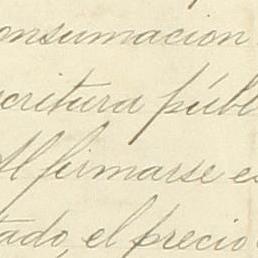 onsumacion
critura públ
Al firmarse e
tado, el precio